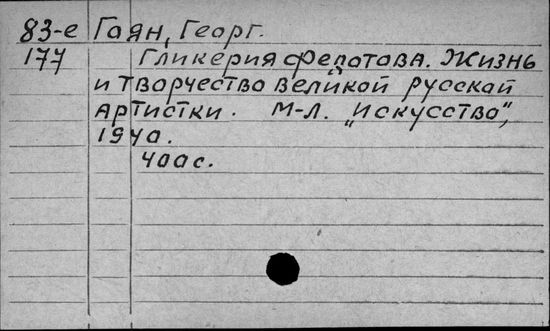 83-е Гоян, Георг.
177 Гликерия Федотова. Жизнь
и творчество великой русской
артистки. М-Л. „Искусство",
1940.
400с.